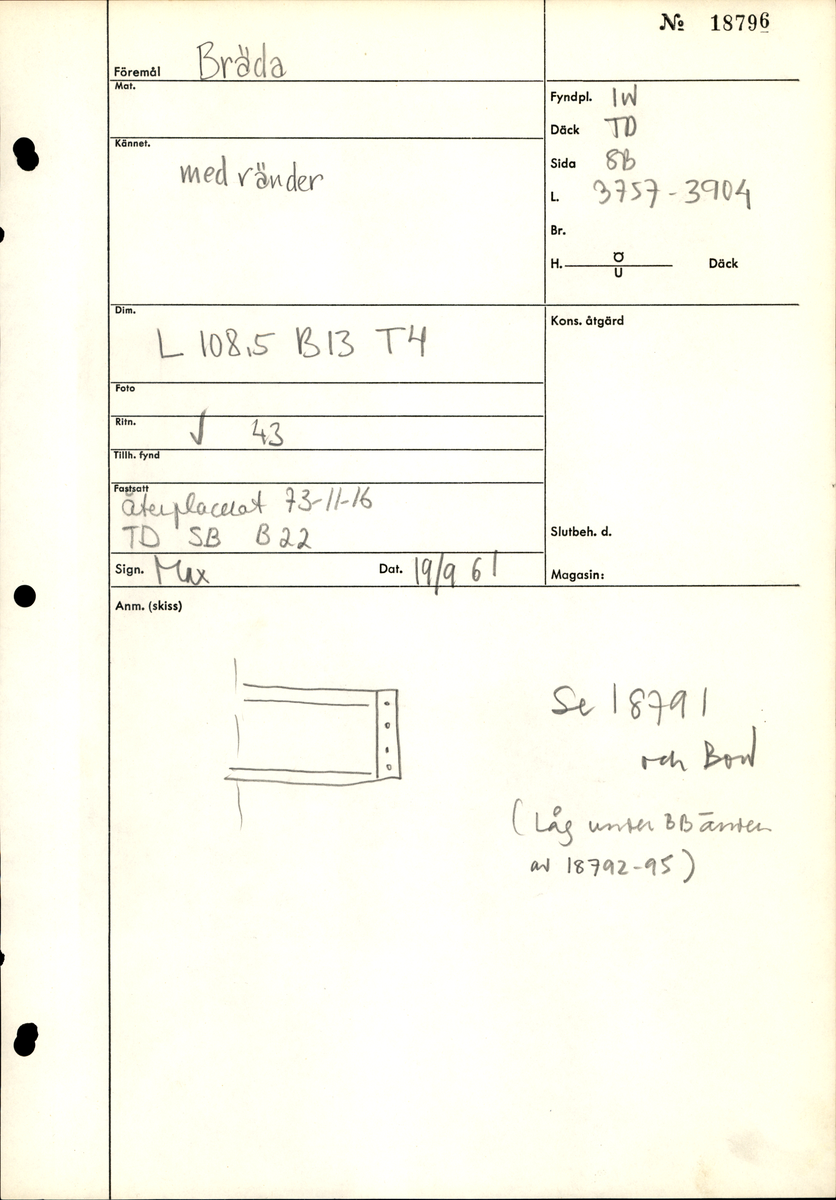 № 18796
Föremål Bräda
Mat.
Kännet.
med ränder
Fyndpl. IW
Däck TD
Sida SB
L. 3757-3904
Br.
H. Ö
U Däck
Dim.
L 108,5 B13 T4
Foto
Ritn. √ 43
Tillh. fynd
Fastsatt
Återplacerat 73-11-16
TD SB B22
Sign. Max Dat. 19/9 61
Kons. åtgärd
Slutbeh. d.
Magasin:
Anm. (skiss)
Se 18791
och Bord
(Låg under BB änden
av 18792-95)